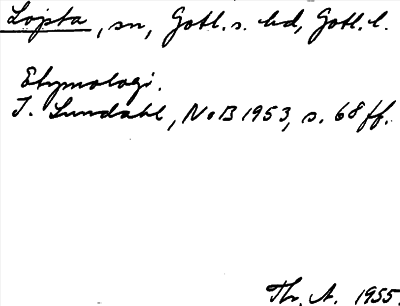 Lojsta, sn, Gotl. s. hd, Gotl. l.
Etymologi.
I. Lundahl, NoB 1953, s. 68 ff.
Th. A. 1955.